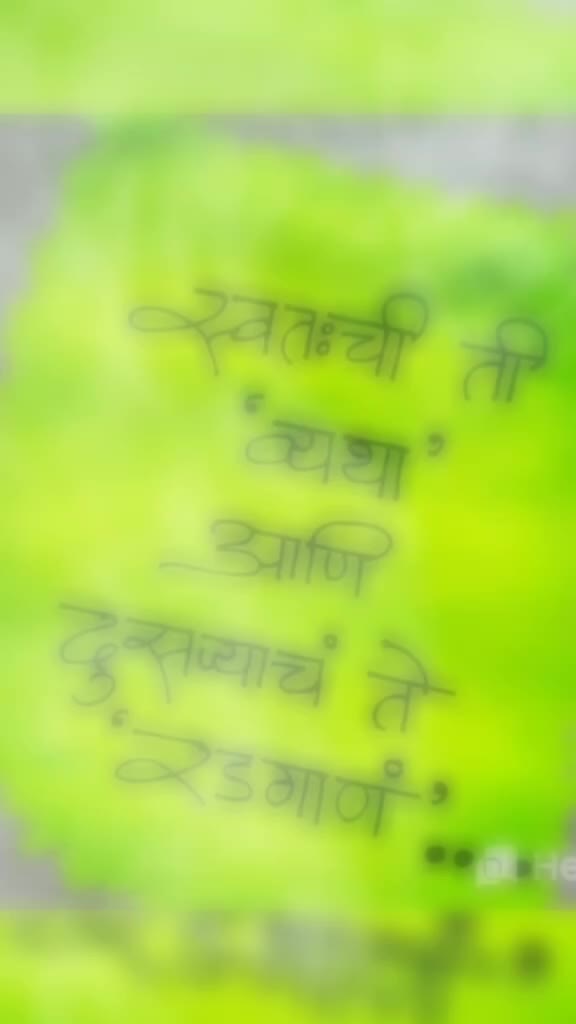 स्वतःची ती
‘व्यथा’
आणि
दुसऱ्याचं ते
‘रडगाणं’
..